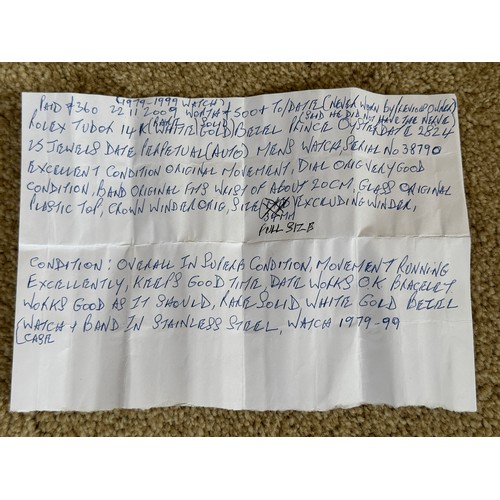 (1979-1999 WATCH)
PAID £360 22 11 2009 WORTH £500+ TO/DATE (NEVER WORN BY PREVIOUS OWNER)
(RARE) (SOLID) (SAID HE DID NOT HAVE THE NERVE
ROLEX TUDOR 14K (WHITE GOLD) BEZEL PRINCE OYSTERDATE 2824
25 JEWELS DATE PERPETUAL (AUTO) MENS WATCH, SERIAL NO 38790
EXCELLENT CONDITION ORIGINAL MOVEMENT, DIAL ORIG VERY GOOD
CONDITION, BAND ORIGINAL FITS WRIST OF ABOUT 20CM, GLASS ORIGINAL
PLASTIC TOP, CROWN WINDER ORIG, SIZE EXCLUDING WINDER,
34MM
FULL SIZE
CONDITION: OVERALL IN SUPERB CONDITION, MOVEMENT RUNNING
EXCELLENTLY, KEEPS GOOD TIME, DATE WORKS OK BRACELET
WORKS GOOD AS IT SHOULD, RARE SOLID WHITE GOLD BEZEL
(WATCH + BAND IN STAINLESS STEEL, WATCH 1979-99
CASE